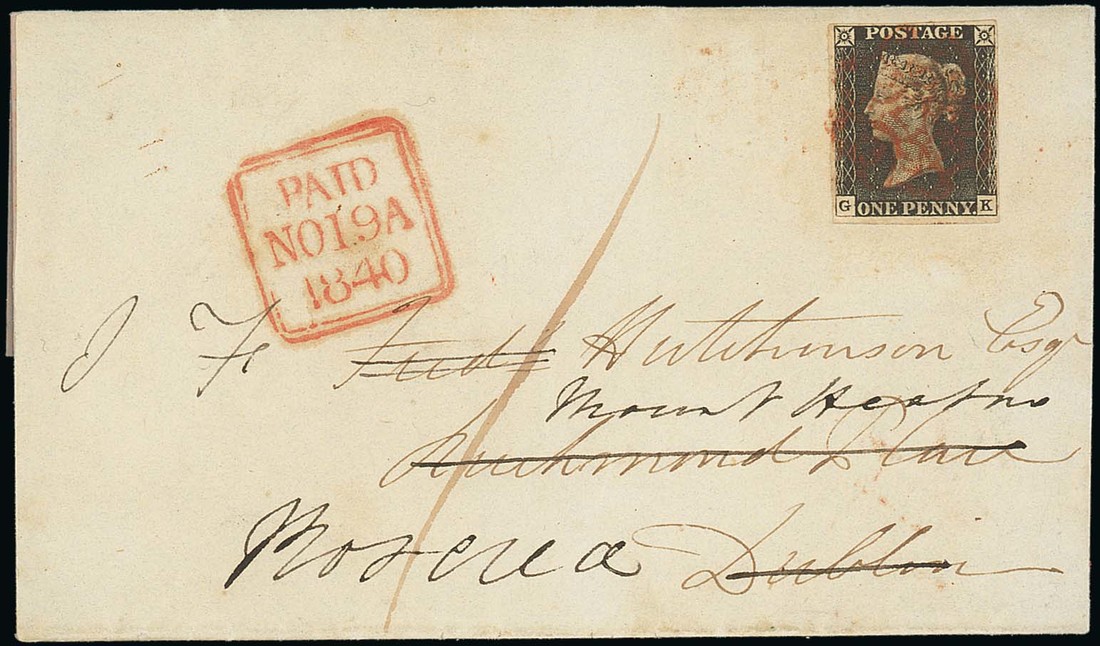 POSTAGE
G ONE PENNY. K
PAID
NO 19 A
1840
J Fe Fredk Hutchinson Esqr
Mount Heaton
Richmond Place
Roscrea Dublin